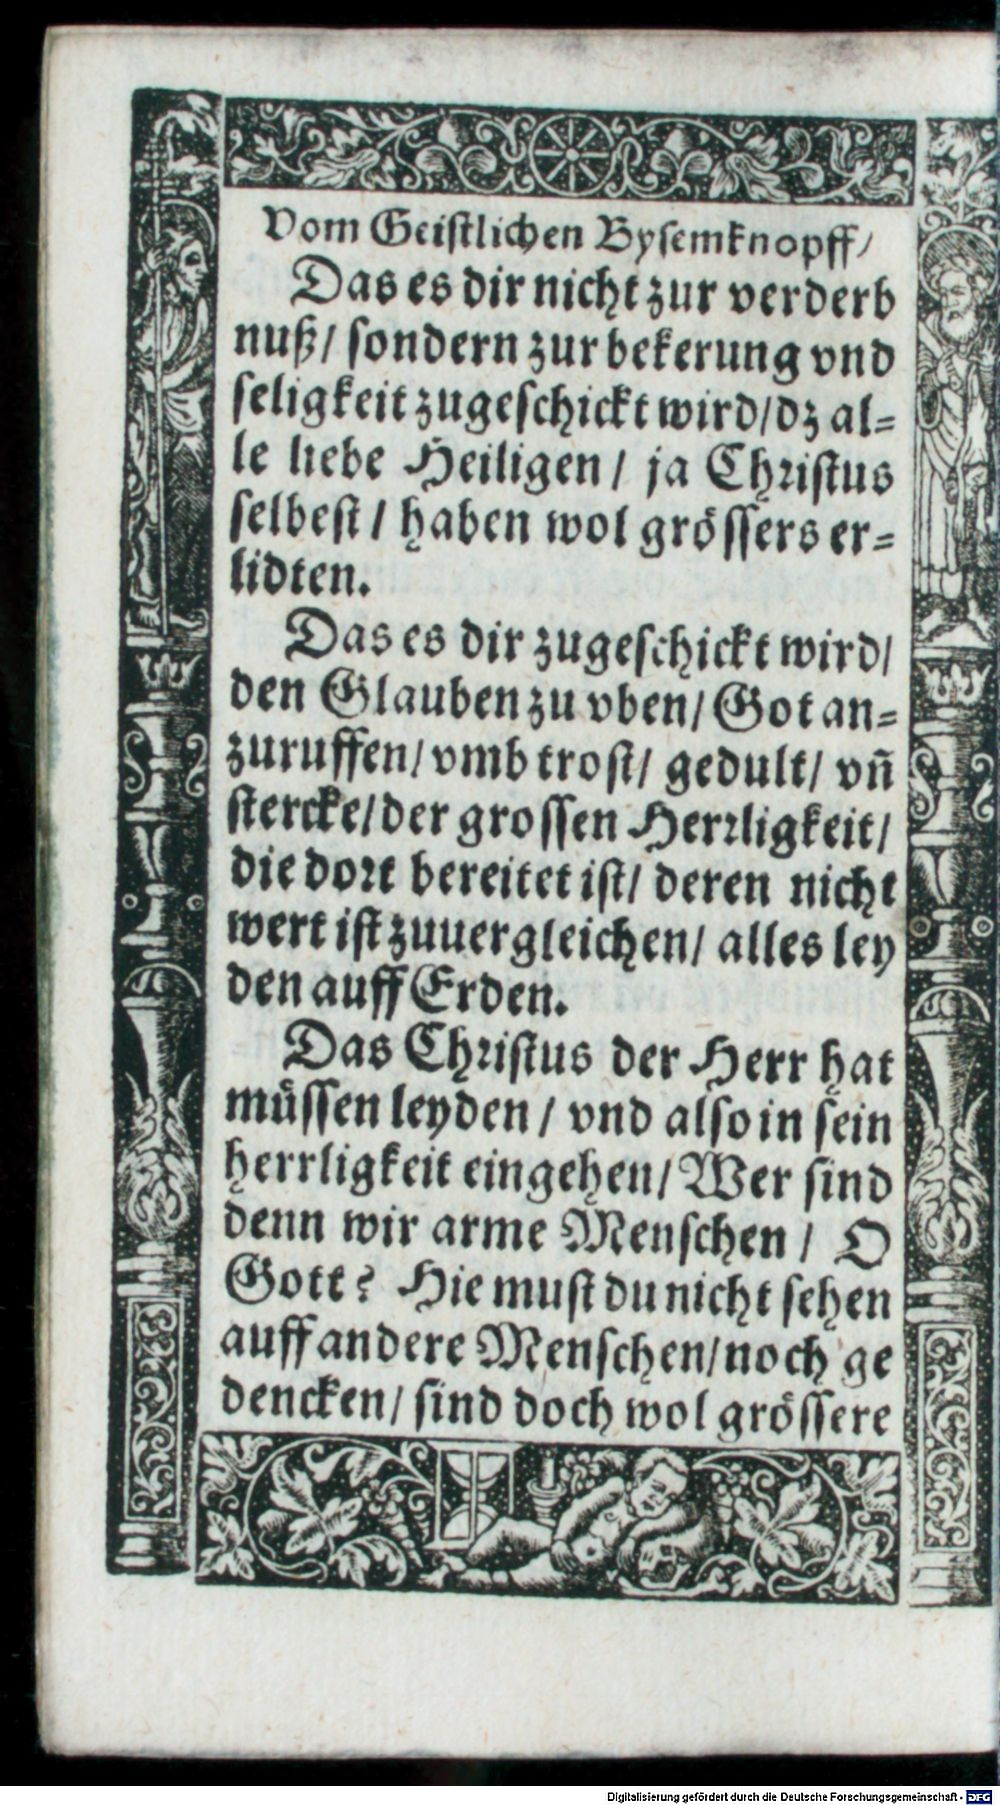 Vom Geistlichen Bysemknopff/
Das es dir nicht zur verderb
nuß/ sondern zur bekerung vnd
seligkeit zugeschickt wird/dz al=
le liebe Heiligen/ ja Christus
selbest/ haben wol grössers er=
lidten.
Das es dir zugeschickt wird/
den Glauben zu vben/ Got an=
zuruffen/ vmb trost/ gedult/ vñ
stercke/ der grossen Herrligkeit/
die dort bereitet ist/ deren nicht
wert ist zuuergleichen/ alles ley
den auff Erden.
Das Christus der Herr hat
müssen leyden/ vnd also in sein
herrligkeit eingehen/ Wer sind
denn wir arme Menschen/ O
Gott? Hie must du nicht sehen
auff andere Menschen/ noch ge
dencken/ sind doch wol grössere
Digitalisierung gefördert durch die Deutsche Forschungsgemeinschaft - DFG